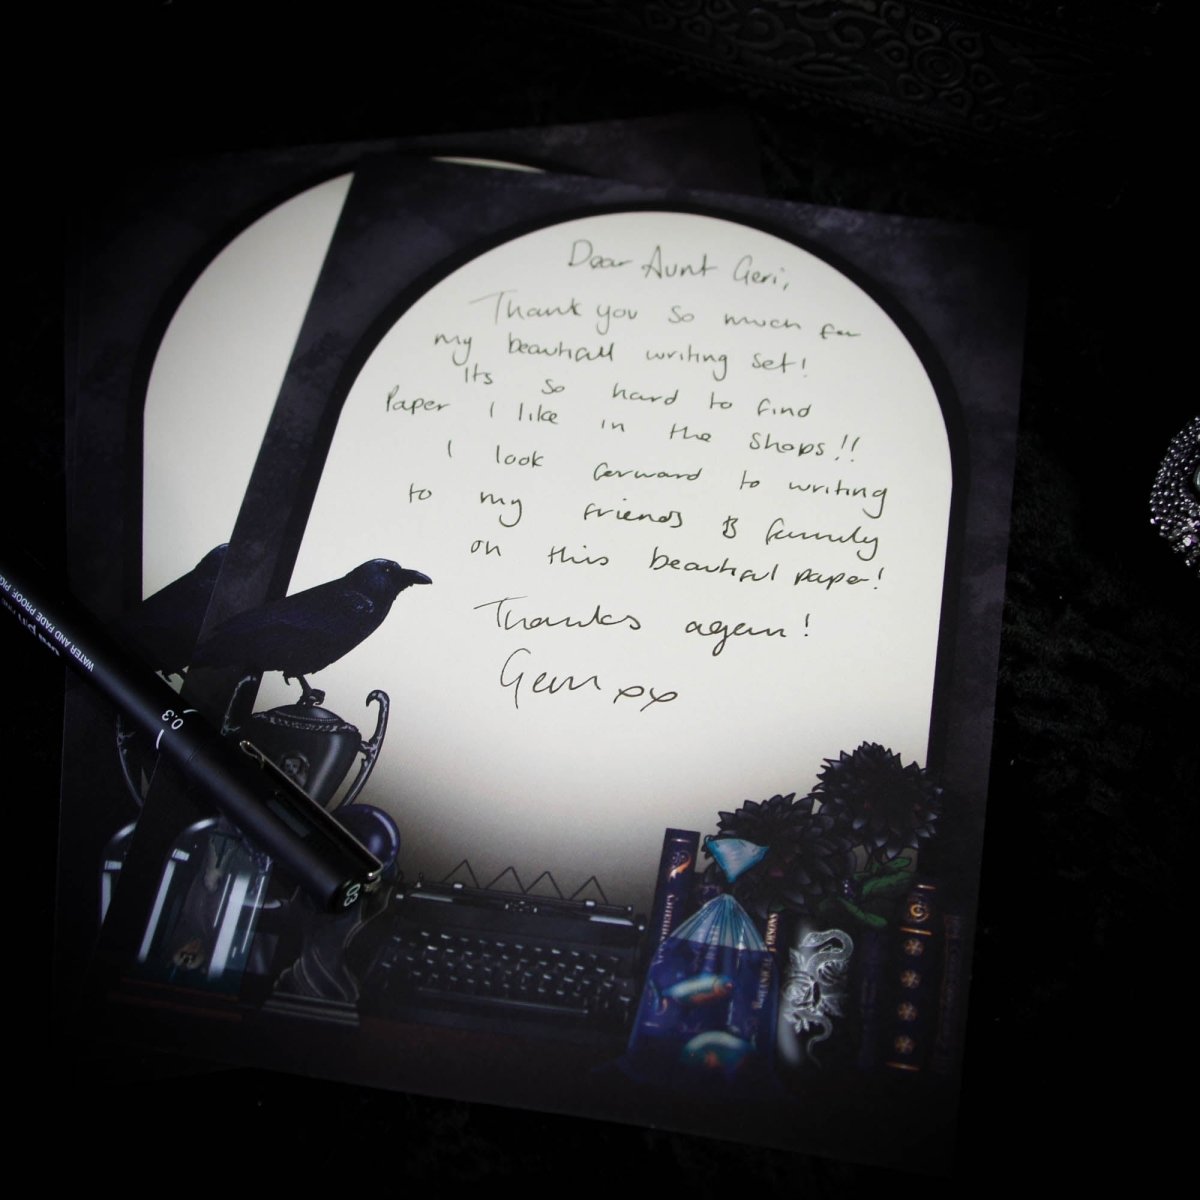 Dear Aunt Geri,
Thank you so much for
my beautifull writing set!
Its so hard to find
Paper I like in the Shops!!
I look forward to writing
to my friends & family
on this beautiful paper!
Thanks again!
Gem xx
WATER AND FADE PROOF, PIG
0.3
03
BOTANICAL POISONS